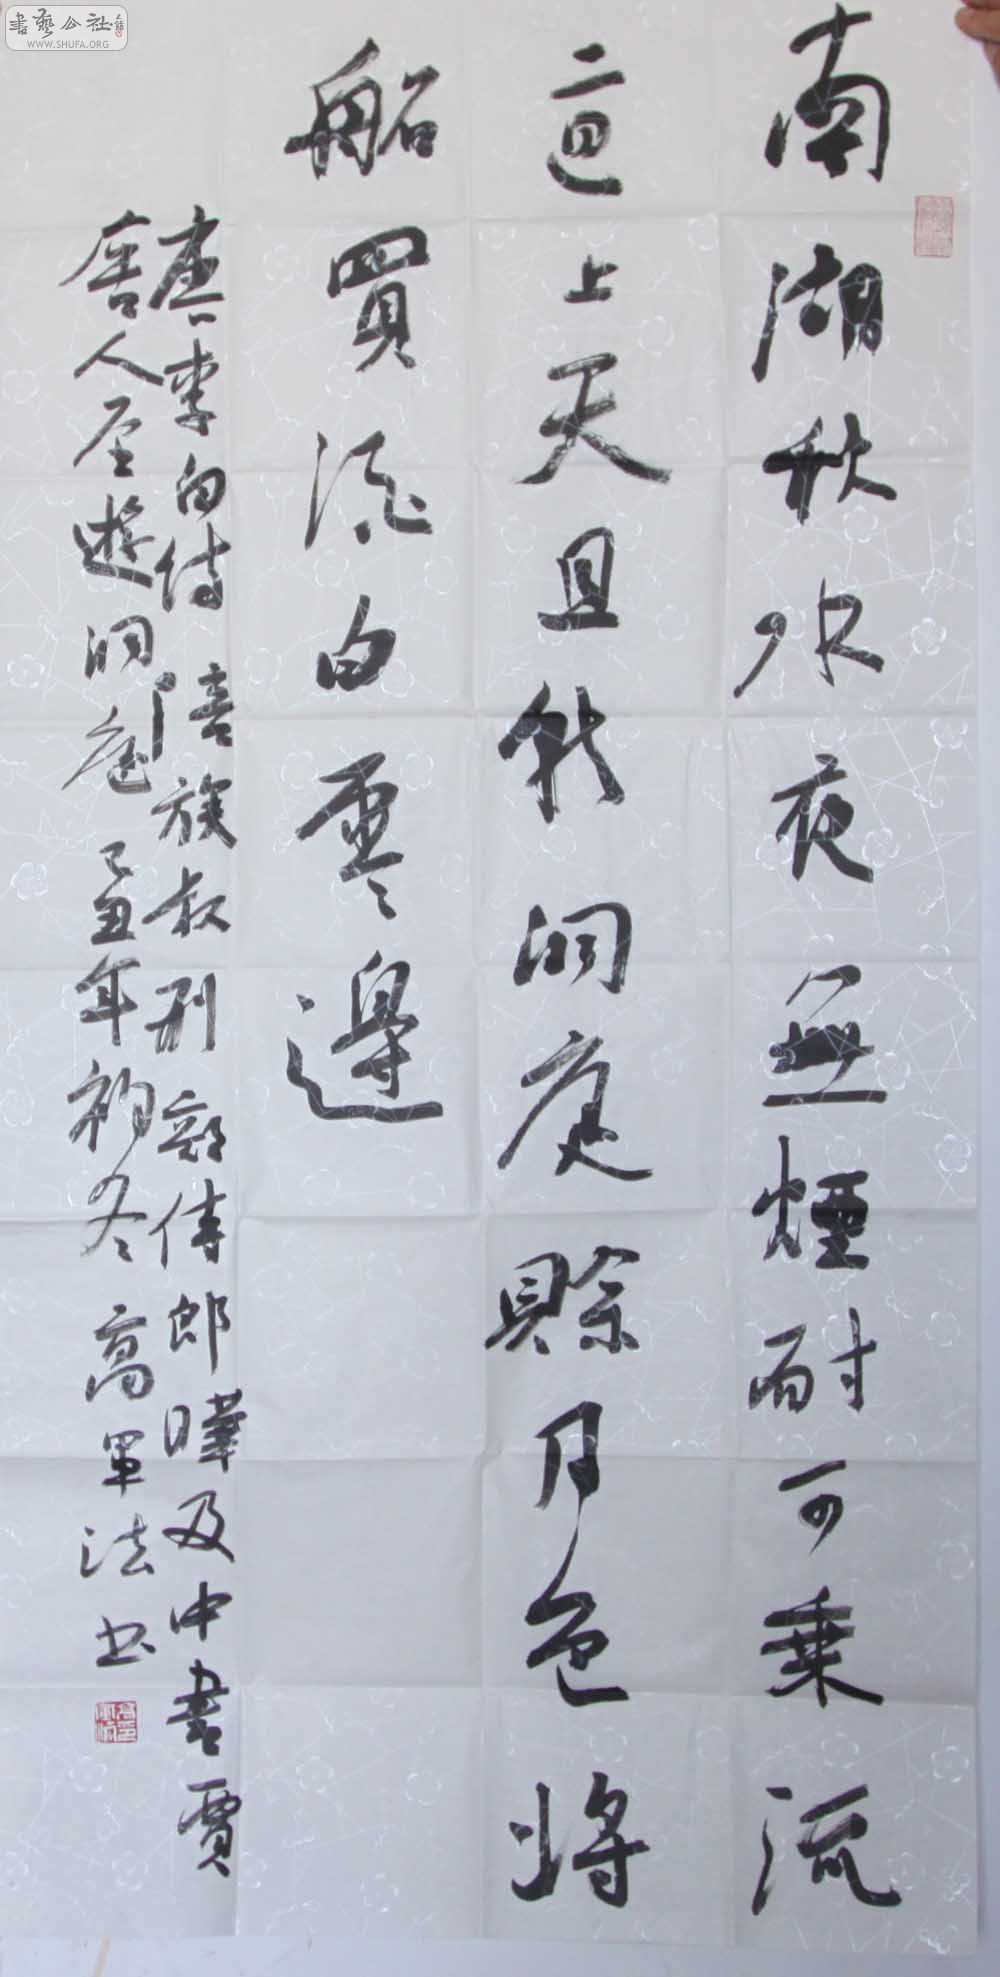 書藝公社
WWW.SHUFA.ORG
南湖秋水夜無煙耐可乘流
直上天且就洞庭賒月色將
船買酒白雲邊
唐李白詩陪族叔刑部侍郎曄及中書賈
舍人至遊洞庭己丑年初冬高軍法书